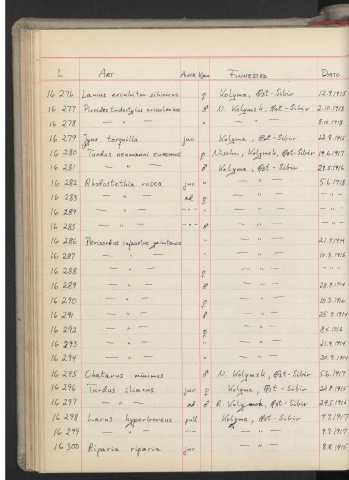 L ART ALDER KJØN FUNNSTED DATO
16 276 Lanius excubitor sibiricus ♀ Kolyma, Øst-Sibir 12.9.1915
16 277 Picoides tridactylus ♂ N. Kolymsk, Øst-Sibir 2.10.1918
16 278 — " — " — " — 8.10.1918
16 279 Jynx torquilla juv. Kolyma, Øst-Sibir 22.8.1915
16 280 Turdus naumanni eunomus ♀ Kolymsk, Øst-Sibir 19.6.1917
16 281 — " — ♂ Kolyma, Øst-Sibir 29.5.1916
16 282 Rhodostethia rosea juv. — " — 5.6.1918
16 283 — " — ad ♀ — " —
16 284 — " — — " —
16 285 — " — ♂ — " —
16 286 Perisoreus infaustus " — " — 21.9.1914
16 287 — " — " — " — 10.3.1916
16 288 — " — ♀ — " —
16 289 — " — ♂ — " — 28.9.1914
16 290 — " — ♀ — " — 10.3.1916
16 291 — " — ♂ — " — 25.9.1914
16 292 — " — ♀ — " —
16 293 — " — " — " — 21.9.1914
16 294 — " — " — " — 30.9.1914
16 295 Catharus minimus ♂ N. Kolymsk, Øst-Sibir 5.6.1917
16 296 Turdus iliacus juv. ♀ Kolyma, Øst-Sibir 22.8.1915
16 297 — " — ad ♂ Kolymsk, Øst-Sibir 29.5.1916
16 298 Larus hyperboreus pull Kolyma, Øst-Sibir 4.7.1917
16 299 — " — — " — 4.7.1917
16 300 Riparia riparia juv. — " — 8.8.1915